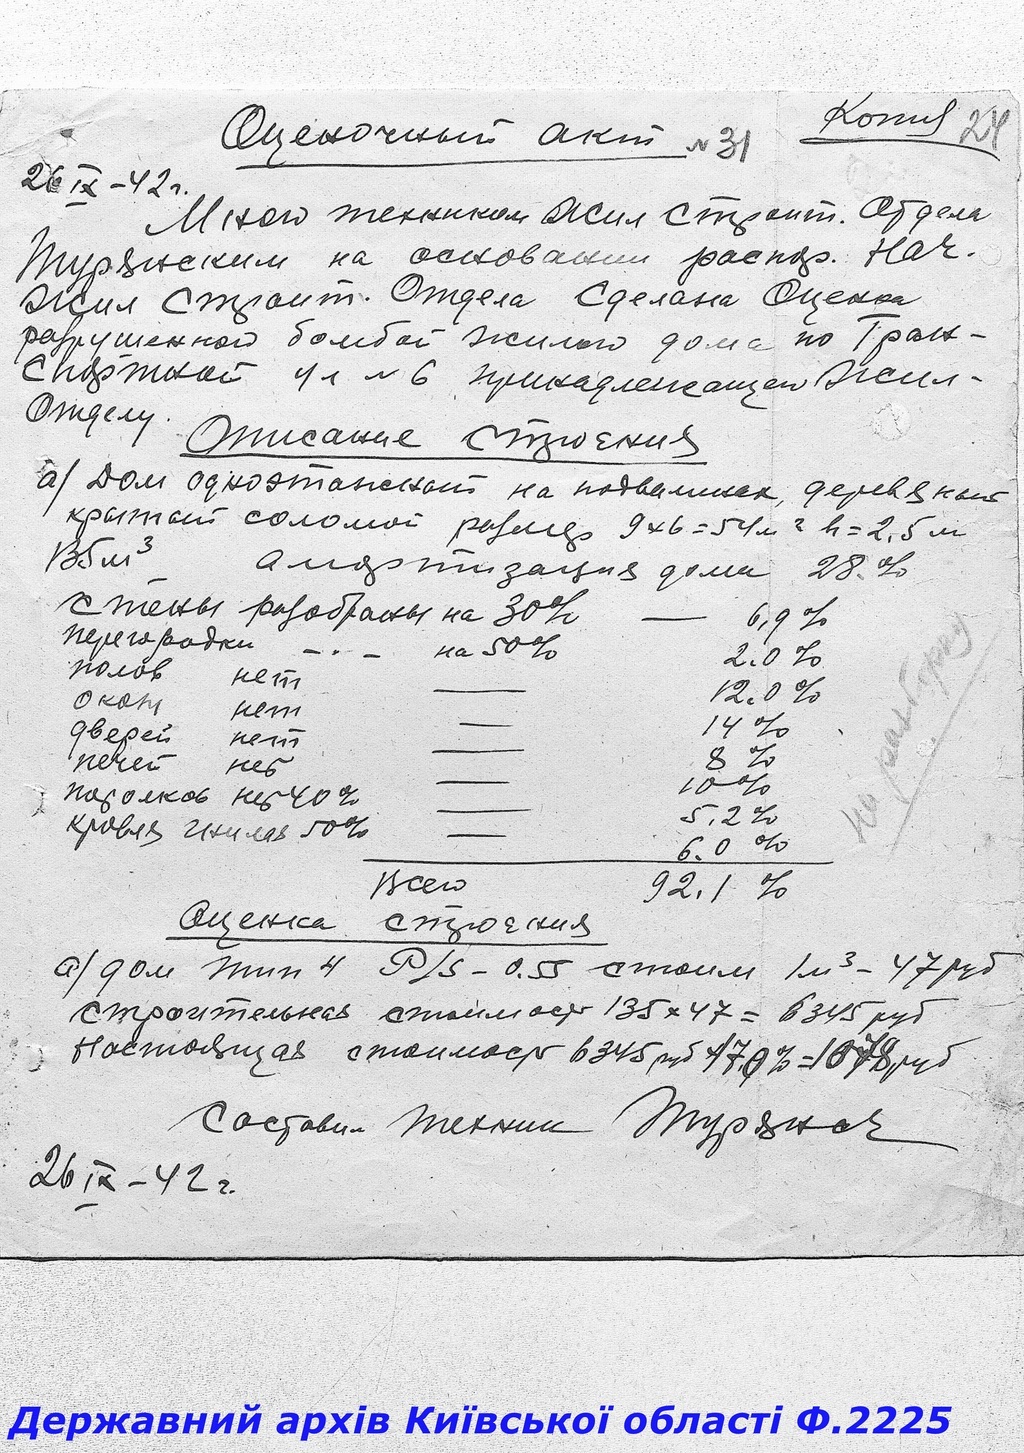 Копия 24
Оценочный акт №31
26 IX - 42 г.
Мною техником Жил Строит. Отдела
Турянским на основании распор. Нач.
Жил Строит. Отдела Сделана Оценка
разрушенной бомбой жилого дома по Тран-
спортной ул №6 принадлежащего Жил-
Отделу.
Описание строения
а/ Дом одноэтажный на подвалинах, деревяный
крытый соломой размер 9х6=54м² h=2,5 м
135м³ Амортизация дома 28.%
Стены разобраны на 30% — 6,9%
перегородки —·— на 50% 2.0%
полов нет — 12.0%
окон нет — 14%
дверей нет — 8%
печей нет — 10%
потолков нет 40% — 5.2%
кровля гнилая 50% — 6.0%
Всего 92.1%
на разборку
Оценка строения
а/ дом тип 4 P/S - 0.55 стоим 1м³ - 47 руб
Строительная стоимост 135х47 = 6345 руб
Настоящая стоимост 6345 руб 17.0% = 1078 руб
Составил техник
26 IX - 42 г.
Державний архів Київської області Ф.2225